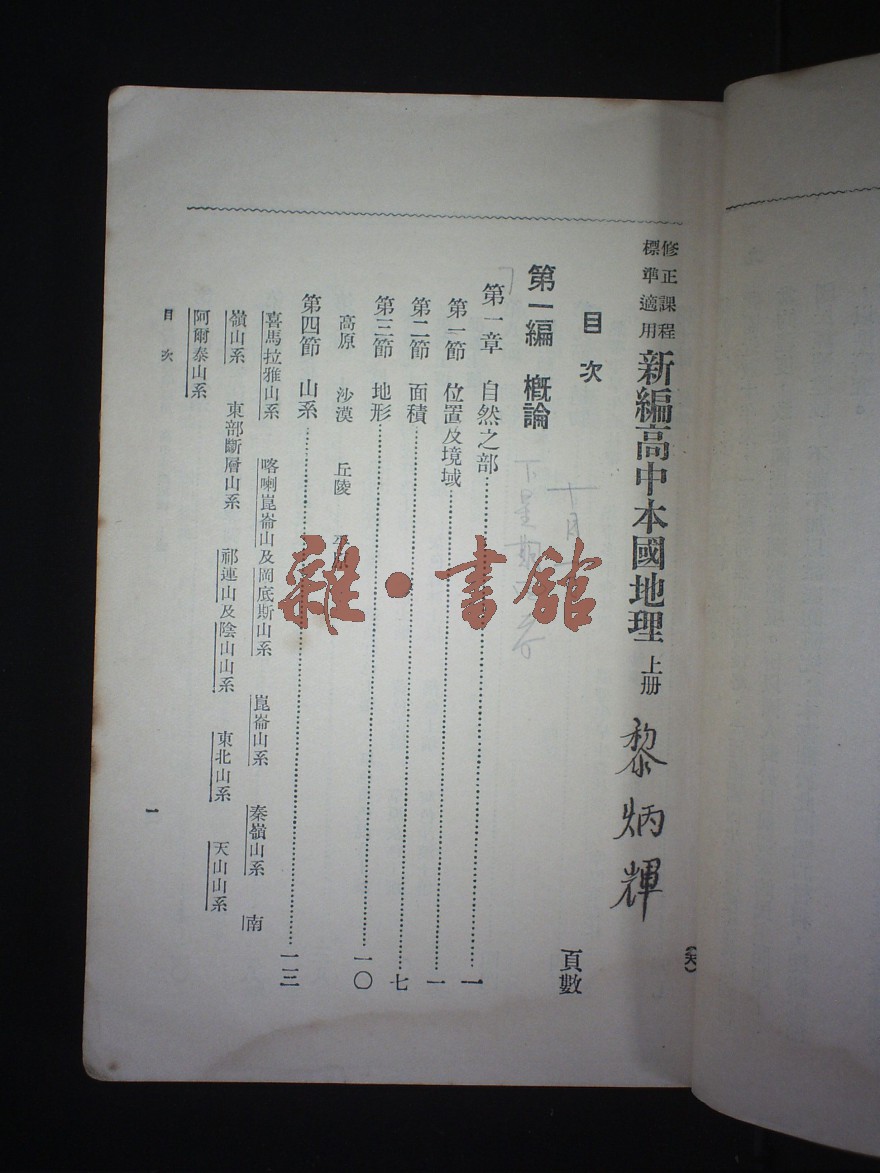 修正課程
標準適用
新編高中本國地理 上册
黎炳輝
目次
頁數
第一編 概論
第一章 自然之部 一
第一節 位置及境域 一
第二節 面積 七
第三節 地形 一〇
高原 沙漠 丘陵 平原
第四節 山系 一三
喜馬拉雅山系 喀喇崑崙山及岡底斯山系 崑崙山系 秦嶺山系 南
嶺山系 東部斷層山系 祁連山及陰山山系 東北山系 天山山系
阿爾泰山系
目次
一
雜·書館
十月
下星期